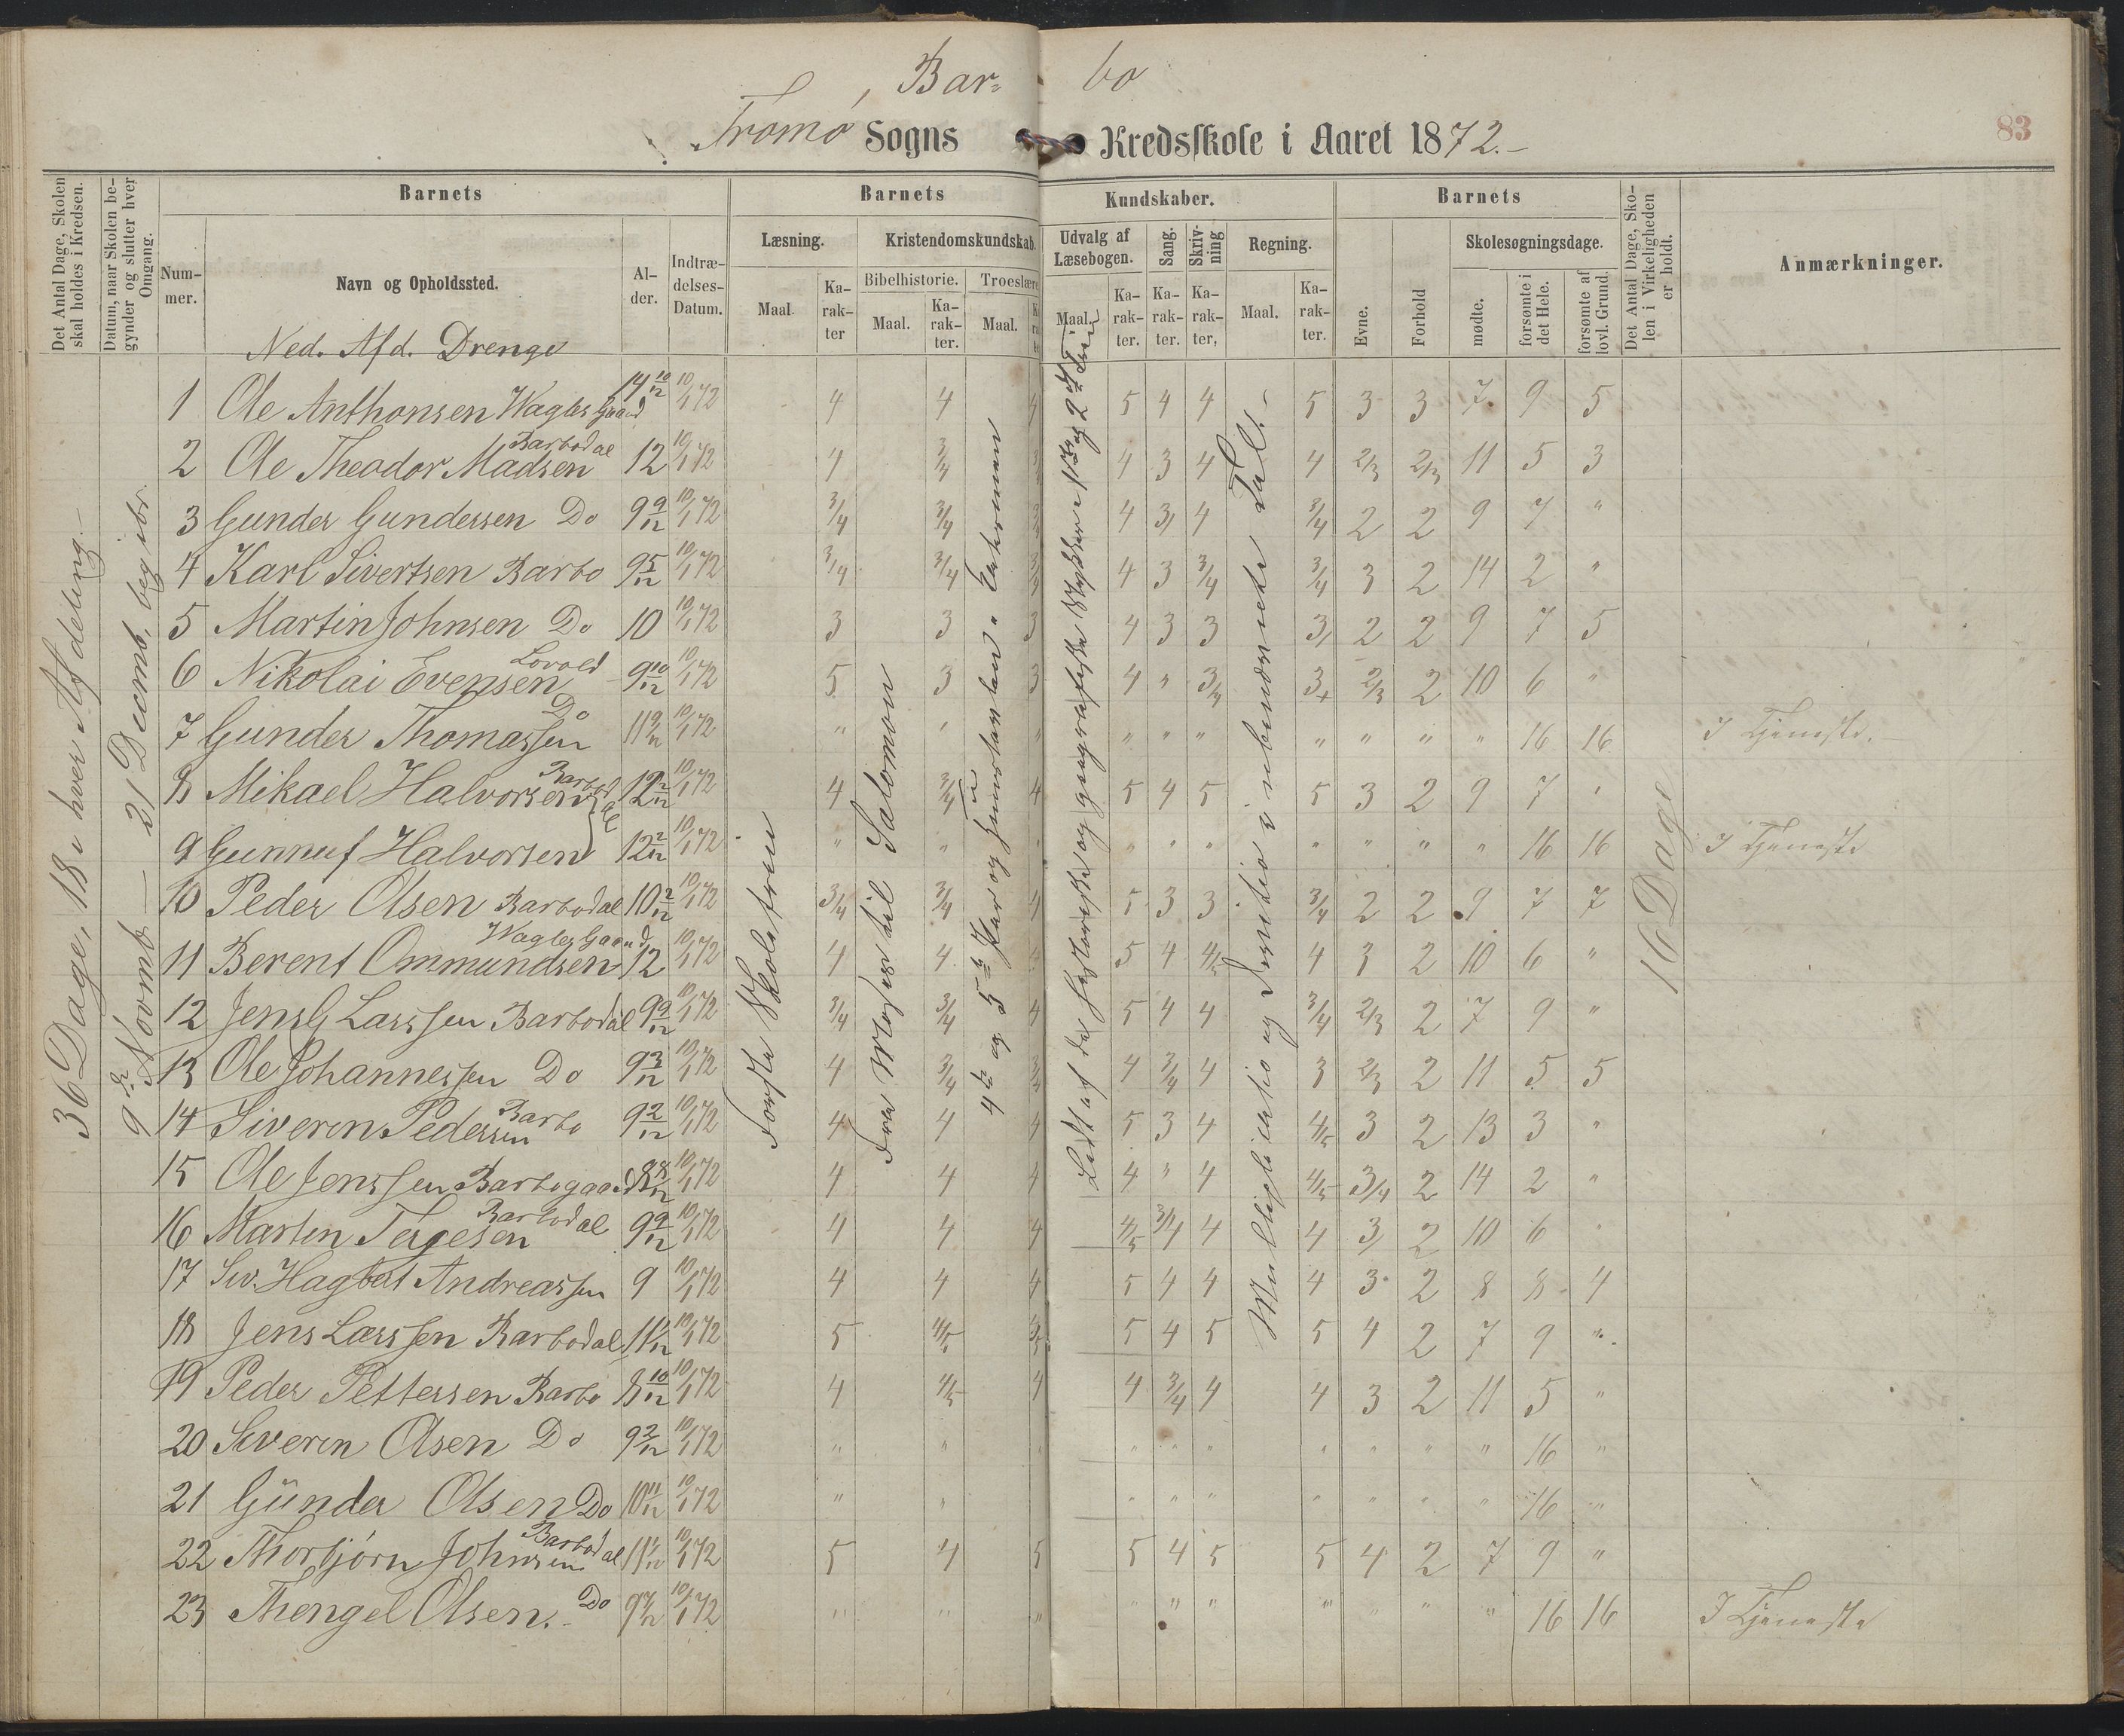 Bar- bo
Tromø Sogns Kredsskole i Aaret 1872.-
83
Det Antal Dage, Skolen skal holdes i Kredsen.
Datum, naar Skolen begynder og slutter hver Omgang.
Barnets
Barnets
Kundskaber.
Barnets
Det Antal Dage, Skolen i Virkeligheden er holdt.
Anmærkninger.
Nummer.
Navn og Opholdssted.
Alder.
Indtrædelses-Datum.
Læsning.
Kristendomskundskab.
Udvalg af Læsebogen.
Sang.
Skrivning
Regning.
Evne.
Forhold
Skolesøgningsdage.
Maal.
Karakter
Bibelhistorie.
Troeslære
Maal.
Karakter.
Maal.
Maal.
Karakter.
Karakter.
Karakter,
Maal.
Karakter.
mødte.
forsømte i det Hele.
forsømte af lovl. Grund.
Ned. Afd. Drenge
36 Dage, 18 i hver Afdeling.-
9de Novemb. — 21 Decemb.
Første Skoletrin
Fra Moses til Salomon
Multiplicatio og Divisio i ubenævnte Tal.-
16 Dage
1 Ole Anthonsen Wagles Gaard 14 10/12 10/1 72 4 4 4 5 4 4 5 3 3 7 9 5
2 Ole Theodor Madsen Barbodal 12 10/1 72 4 3/4 3/4 4 3 4 4 2/3 2/3 11 5 3
3 Gunder Gundersen Do 9 9/12 10/1 72 3/4 3/4 3/4 4 3 4 3/4 2 2 9 7 "
4 Karl Sivertsen Barbo 9 5/12 10/1 72 3/4 3/4 3/4 4 3 3/4 3/4 3 2 14 2 "
5 Martin Johnsen Do 10 10/1 72 3 3 3 4 3 3 3 2 2 9 7 5
6 Nikolai Evensen Lovold 9 10/12 10/1 72 5 3 3 4 " 3/4 3+ 2/3 2 10 6 "
7 Gunder Thomassen Do 11 9/12 10/1 72 " " " " " " " " " " 16 16 I Tjeneste.-
8 Mikael Halvorsen Barbodal 12 2/12 10/1 72 4 3/4 4 5 4 5 5 3 2 9 7 "
9 Gunnuf Halvorsen 12 2/12 10/1 72 " " " " " " " " " " 16 16 I Tjeneste
10 Peder Olsen Barbodal 10 2/12 10/1 72 3/4 3/4 4 5 3 3 3/4 2 2 9 7 7
11 Berent Ommundsen Wagles Gaard 12 10/1 72 4 4 4 5 4 4/5 4 3 2 10 6 "
12 Jens G Larssen Barbodal 9 9/12 10/1 72 3/4 3/4 4 5 4 4 3/4 2/3 2 7 9 "
13 Ole Johannessen Do 9 3/12 10/1 72 4 3/4 3/4 4 3/4 4 3 2/3 2 11 5 5
14 Siveren Pedersen Barbo 9 2/12 10/1 72 4 4 4 5 3 4 4/5 3 2 13 3 "
15 Ole Jenssen Barbogaard 8 8/12 10/1 72 4 4 4 4 " 4 4/5 3/4 2 14 2 "
16 Marten Terjesen Barbodal 9 9/12 10/1 72 4 4 4 4/5 3/4 4 4 3 2 10 6 "
17 Siv. Hagbart Andreassen 9 10/1 72 4 4 4 5 4 4 4 3 2 8 8 4
18 Jens Larssen Barbodal 11 1/12 10/1 72 5 4/5 4/5 5 4 5 5 4 2 7 9 "
19 Peder Pettersen Barbo 8 10/12 10/1 72 4 4/5 4 4 3/4 4 4 3 2 11 5 "
20 Siveren Olsen Do 9 2/12 10/1 72 " " " " " " " " " " 16 "
21 Günder Olsen Do 10 11/12 10/1 72 " " " " " " " " " " 16 "
22 Thorbjørn Johnsen Barbodal 11 1/12 10/1 72 5 4 5 5 4 5 5 4 2 7 9 "
23 Thengel Olsen. Do 9 7/12 10/1 72 " " " " " " " " " " 16 16 I Tjeneste